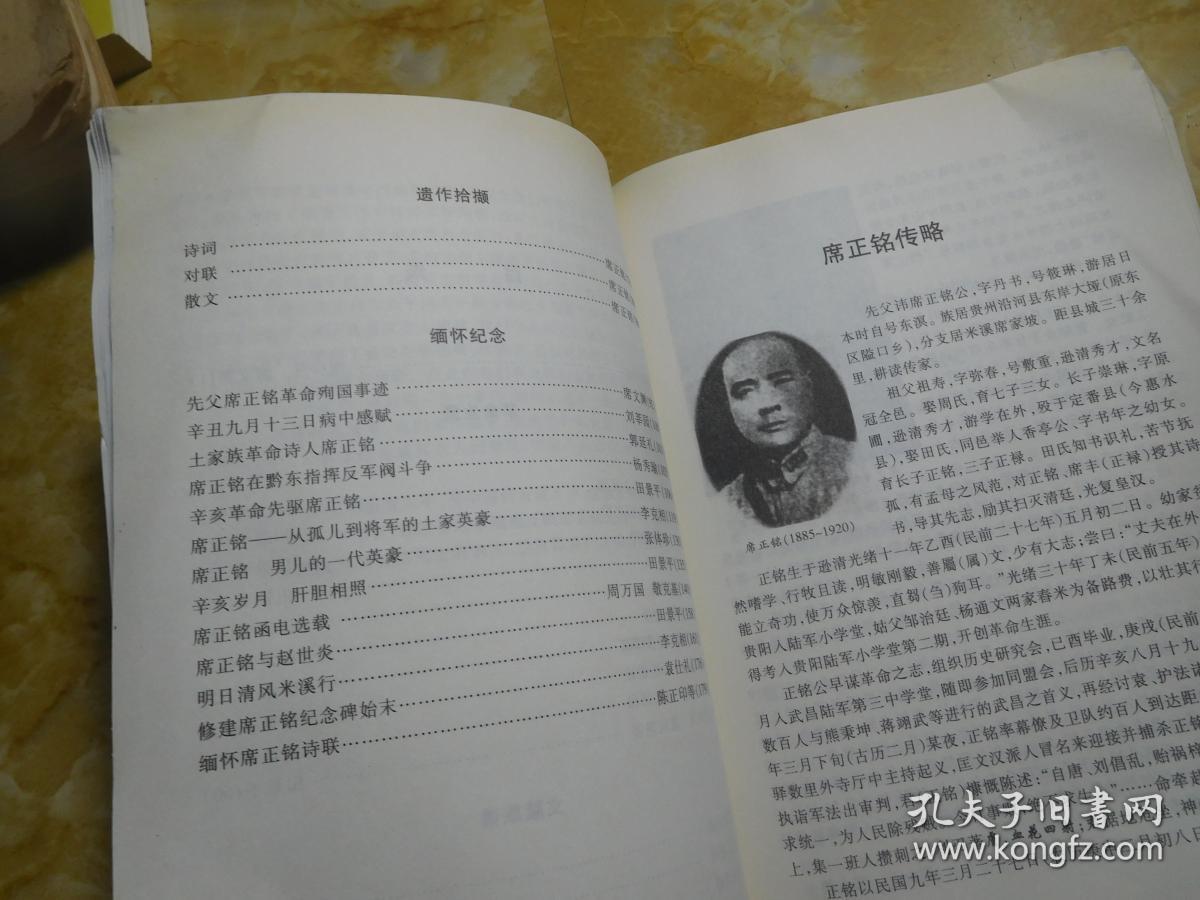 遗作拾撷
诗词
对联
散文
缅怀纪念
先父席正铭革命殉国事迹
辛丑九月十三日病中感赋
土家族革命诗人席正铭
席正铭在黔东指挥反军阀斗争
辛亥革命先驱席正铭
席正铭——从孤儿到将军的土家英豪 李克相
席正铭 男儿的一代英豪 张体珍
辛亥岁月 肝胆相照 田景平
席正铭函电选载 周万国 敬克基
席正铭与赵世炎 田景平
明日清风米溪行 李克相
修建席正铭纪念碑始末 袁仕礼
缅怀席正铭诗联 陈正印等
席正铭传略
先父讳席正铭公,字丹书,号筱琳,游居日
本时自号东溟。族居贵州沿河县东岸大垭(原东
区隘口乡),分支居米溪席家坡。距县城三十余
里,耕读传家。
祖父祖寿,字弥春,号敷重,逊清秀才,文名
冠全邑。娶周氏,育七子三女。长子崇琳,字原
圃,逊清秀才,游学在外,殁于定番县(今惠水
县),娶田氏,同邑举人香亭公、字书年之幼女。
育长子正铭,三子正禄。田氏知书识礼,苦节抚
孤,有孟母之风范,对正铭、席丰(正禄)授其诗
书,导其先志,励其扫灭清廷,光复皇汉。
席正铭(1885-1920)
正铭生于逊清光绪十一年乙酉(民前二十七年)五月初二日。幼家
然嗜学、行牧且读,明敏刚毅,善屬(属)文,少有大志;尝曰:“丈夫在外
能立奇功,使万众惊羡,直芻(刍)狗耳。”光绪三十年丁未(民前五年)
贵阳人陆军小学堂,姑父邹治廷、杨通文两家舂米为备路费,以壮其行
得考人贵阳陆军小学堂第二期,开创革命生涯。
正铭公早谋革命之志,组织历史研究会,己酉毕业,庚戌(民前
月人武昌陆军第三中学堂,随即参加同盟会,后历辛亥八月十九
数百人与熊秉坤、蒋翊武等进行的武昌之首义,再经讨袁、护法诸
年三月下旬(古历二月)某夜,正铭率幕僚及卫队约百人到达距
驿数里外寺厅中主持起义,匡文汉派人冒名来迎接并捕杀正
执诣军法出审判,君(正铭)慷慨陈述:“自唐、刘倡乱,贻祸
求统一,为人民除残
上,集一班人攒刺
正铭以民国九年三月二十七日
孔夫子旧书网
www.kongfz.com